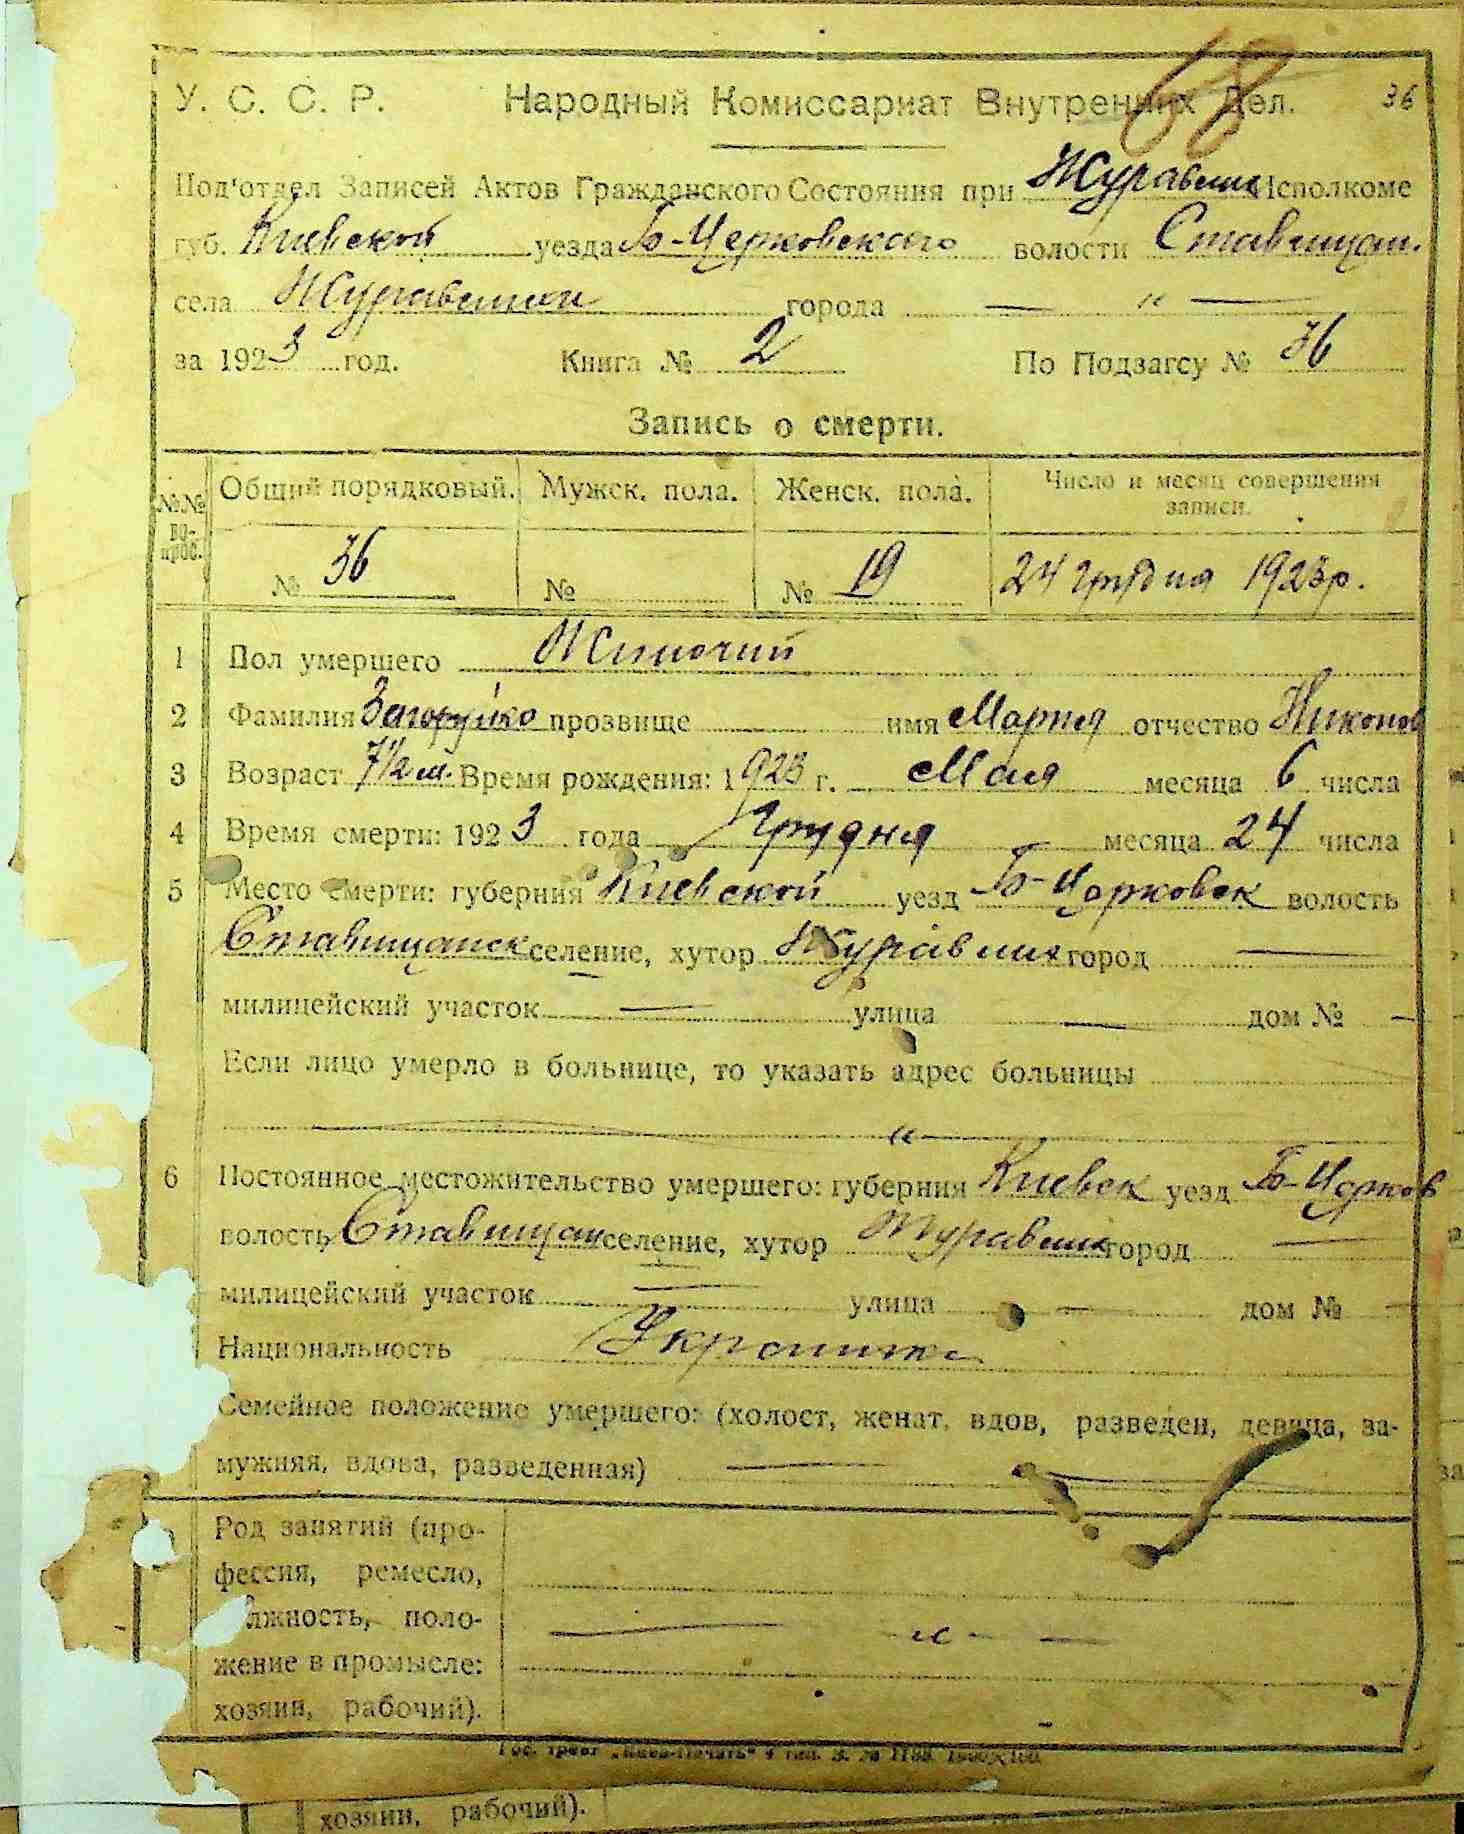 68
У. С. С. Р. Народный Комиссариат Внутренних Дел. 36
Под'отдел Записей Актов Гражданского Состояния при Журавлих Исполкоме
губ. Киевской уезда Б-Церковского волости Ставищан.
села Журавлихи города — " —
за 1923 год. Книга № 2 По Подзагсу № 36
Запись о смерти.
№№ вопрос. Общий порядковый. Мужск. пола. Женск. пола. Число и месяц совершения записи.
№ 36 № № 19 24 грудня 1923р.
1 Пол умершего Жиночий
2 Фамилия Загоруйко прозвище имя Мария отчество Никонов
3 Возраст 7 1/2 м. Время рождения: 1923 г. Мая месяца 6 числа
4 Время смерти: 1923 года Грудня месяца 24 числа
5 Место смерти: губерния Киевской уезд Б-Церковск волость
Ставищанск селение, хутор Журавлих город —
милицейский участок — улица — дом № —
Если лицо умерло в больнице, то указать адрес больницы
— " —
6 Постоянное местожительство умершего: губерния Киевск уезд Б-Церков
волость Ставищан селение, хутор Журавлих город —
милицейский участок — улица — дом № —
Национальность Украинка
Семейное положение умершего: (холост, женат, вдов, разведен, девица, за-
мужняя, вдова, разведенная) —
Род занятий (про-
фессия, ремесло,
лжность, поло-
жение в промысле:
хозяин, рабочий).
— " —
Гос. трест „Киев-Печать" 4 тип. З. №
хозяин, рабочий).